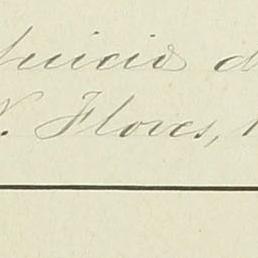 Juicio d
V. Flores,